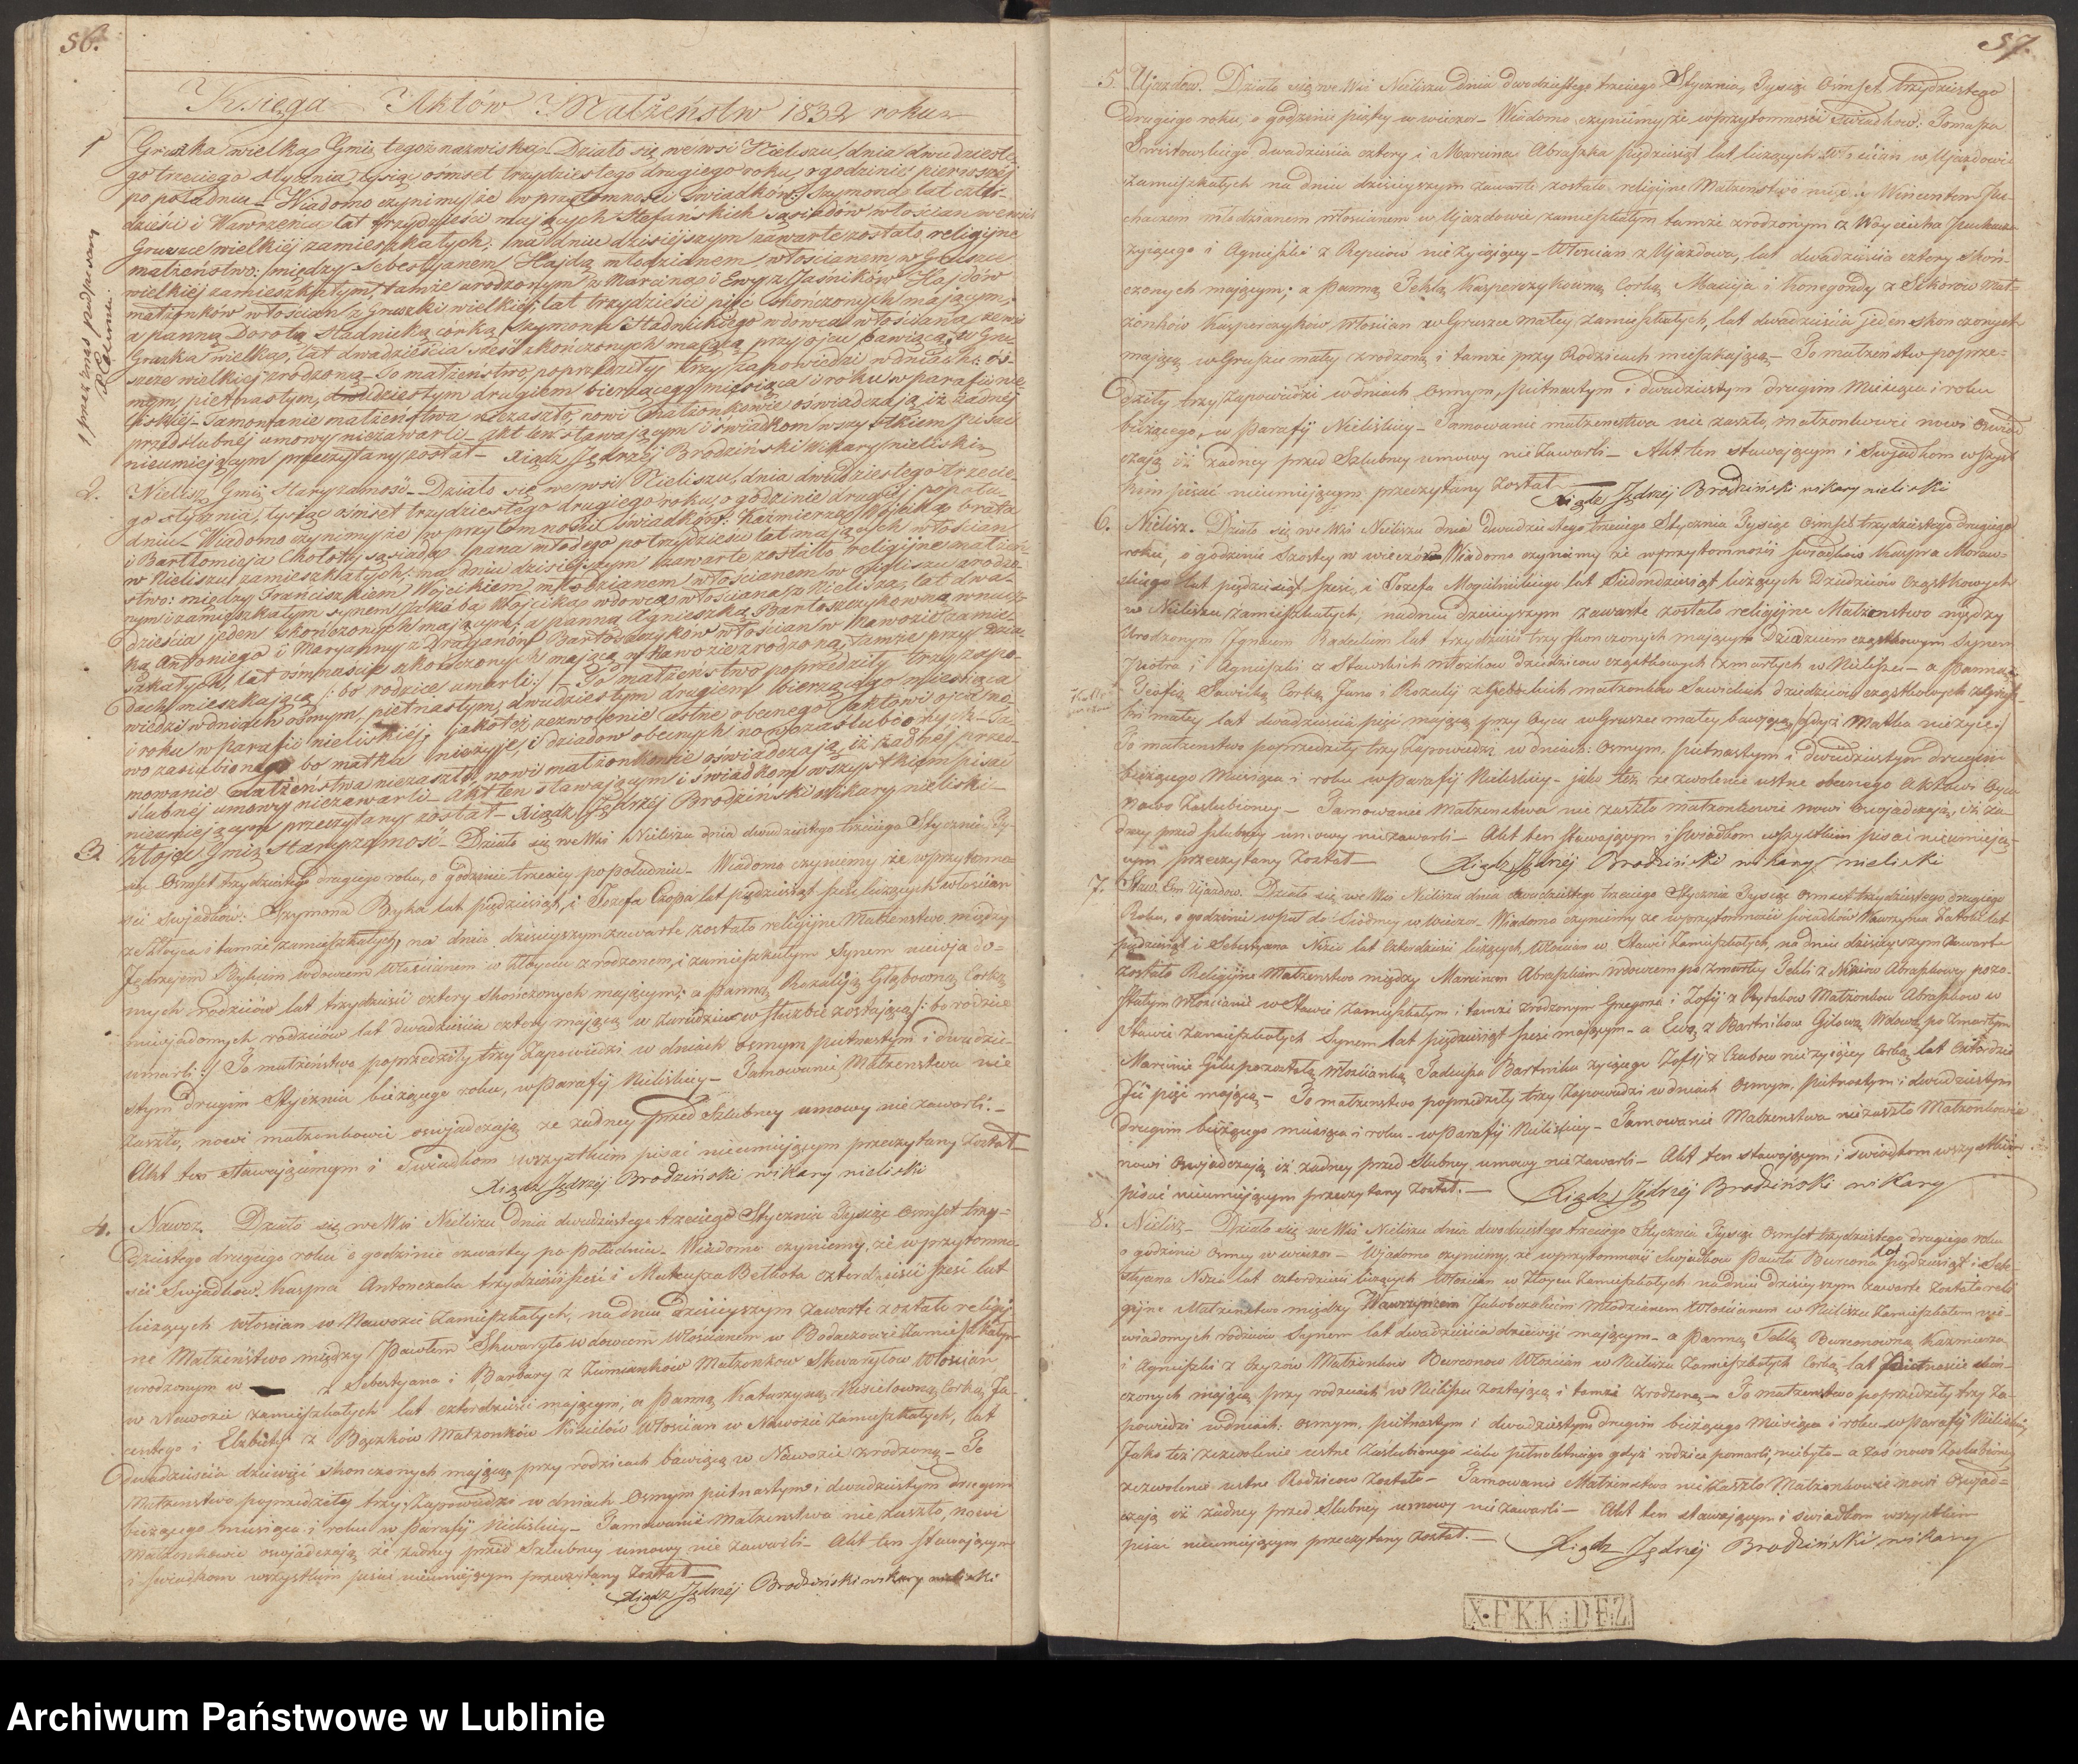 56.
Księga Aktów Małżeństw 1832 roku
1 Gruszka wielka Gmi: tegoż nazwiska. Działo się we wsi Nieliszu, dnia dwudzieste-
go trzeciego stycznia, tysiąc ośmset trzydziestego drugiego roku, o godzinie pierwszej
po południu _ Wiadomo czynimy, że w przytomności świadków: Szymona lat czter-
dzieści i Wawrzeńca lat trzydzieści mających Stefańskich sąsiadów włościan we wsi
Gruszce wielkiej zamieszkałych; na dniu dzisiejszym zawarte zostało religijne
małżeństwo: między Sebestyjanem Hajdą młodzianem włościanem w Gruszce
wielkiej zamieszkałym, tamże urodzonym z Marcina i Ewy z Jaśników Hajdów
małżonków włościan z Gruszki wielkiej, lat trzydzieści pięć skończonych mającym;
a panną Dorotą Stadnicką córką Szymona Stadnickiego wdowca włościana ze wsi
Gruszka wielka, lat dwadzieścia sześć skończonych mającą przy ojcu bawiącą, w Gru-
szce wielkiej zrodzoną _ To małżeństwo poprzedziły trzy zapowiedzi w dniach: ós-
mym, pietnastym, dwudziestym drugiem bierzącego miesiąca i roku w parafii nie-
liskiej _ Tamowanie małżeństwa niezaszło, nowi małżonkowie oświadczają, iż żadnej
przedślubnej umowy niezawarli _ Akt ten stawającym i świadkom wszystkiem pisać
nieumiejącym przeczytany został _ Xiądz Jędrzej Brodziński Wikary nieliski
2. Nielisz Gmi: Staryzamość _ Działo się we wsi Nieliszu, dnia dwudziestego trzecie-
go stycznia, tysiąc ośmset trzydziestego drugiego roku, o godzinie drugiej popołu-
dniu _ Wiadomo czynimy, że w przytomności świadków: Kaźmierza Wójcika brata
i Bartłomieja Chołoty sąsiada pana młodego po trzydzieści lat mających włościan
w Nieliszu zamieszkałych; na dniu dzisiejszym zawarte zostało religijne małżeń-
stwo: między Franciszkiem Wójcikiem młodzianem włościanem w Nieliszu urodzo-
nym i zamieszkałym synem Jakóba Wójcika wdowca włościana z Nielisza, lat dwa-
dzieścia jeden skończonych mającym, a panną Agnieszką Bartoszczykowną wnucz-
ką Antoniego i Maryanny z Drążanów Bartoszczyków włościan w Nawozie zamie-
szkałych, lat ośmnaście skończonych mającą w Nawozie zrodzoną, tamże przy dzia-
dach mieszkającą /: bo rodzice umarli :/ _ To małżeństwo poprzedziły trzy zapo-
wiedzi w dniach ósmym, pietnastym, dwudziestym drugiem bierzącego miesiąca
i roku w parafii nieliskiej, jakoteż zezwolenie ustne obecnego Aktowi ojca no-
wo zaślubionego bo matka nieżyje, i dziadów obecnych nowozaślubionych _ Ta-
mowanie małżeństwa niezaszło, nowi małżonkowie oświadczają, iż żadnej przed-
ślubnej umowy niezawarli _ Akt ten stawającym i świadkom wszystkiem pisać
nieumiejącym przeczytany został _ Xiądz Jędrzej Brodziński wikary nieliski _
3 Złojec Gmi: Staryzamość _ Działo się we Wsi Nieliszu dnia dwudziestego trzeciego Stycznia Ty-
siąc Ośmset trzydziestego drugiego roku, o godzinie trzeciey po południu _ Wiadomo czyniemy że w przytomno-
ści Swjadków: Szymona Byka lat pięćdziesiąt, i Jozefa Czopa lat pięćdziesiąt sześć liczących włościan
ze Złoyca i tamże zamieszkałych, na dniu dzisieyszym zawarte zostało religijne Małżenstwo między
Jędrzejem wdowcem Włościanem w Złoycu zrodzonem, i zamieszkałym Synem niewjado-
mych rodziców lat trzydzieści cztery skończonych mającym; a panną Rozaliją Głąbowną Corką
niewjadomych rodziców lat dwadzieścia cztery mającą w Zarudziu w służbie zostającą /: bo rodzice
umarli :/ To małżeństwo poprzedziły trzy Zapowiedzi w dniach osmym pietnastym i dwudzie-
stym drugim Stycznia bieżącego roku, w Parafij Nieliskiey _ Tamowanie Małżenstwa nie
zaszło, nowi małżonkowie oswjadczają że żadney przed Szlubney umowy nie zawarli. _
Akt ten stawającemym i Swiadkom wszystkim pisać nieumiejącym przeczytany został _
Xiądz Jędrzej Brodziński wikary nieliski
4. Nawoz. Działo się we Wsi Nieliszu dnia dwudziestego trzeciego Stycznia Tysiąc Osmset trzy-
dziestego drugiego roku o godzinie czwartey po południu _ Wiadomo czyniemy, że w przytomno-
ści Swjadków Kaspra Antonczaka trzydzieści sześć i Mateusza Bełkota czterdzieści sześć lat
liczących Włościan w Nawozie Zamieszkałych, na dniu dzisieyszym zawarte zostało religij-
ne Małżeństwo między Pawłem Skwaryło wdowcem Włościanem w Bodaczowie Zamieszkałym
urodzonym w z Sebestyana i Barbary z Małżonkow Skwaryłow Włoscian
w Nawozie zamieszkałych lat czterdzieści mającym; a Panną Katarzyną Kisielowną Corką Ja-
centego i Elzbiety z Bączków Małżonków Kisielów Włościan w Nawozie Zamieszkałych, lat
dwadzieścia dziewięć skonczonych mającą przy rodzicach bawiącą w Nawozie zrodzoną _ To
Małżenstwo poprzedziły trzy Zapowiedzi w dniach Osmym pietnastym i dwudziestym drugim
bieżącego miesiąca i roku w Parafij Nieliskiey _ Tamowanie Małżenstwa nie zaszło, nowi
Małżonkowie oswjadczają że żadney przed Szlubney umowy nie zawarli _ Akt ten stawającym
i swiadkom wszystkim pisać nieumiejącym przeczytany został _
Xiądz Jędrzej Brodziński wikary nieliski
57.
5. Ujazdow. Działo się we Wsi Nieliszu dnia dwudziestego trzeciego Stycznia, Tysiąc Ośmset trzydziestego
drugiego roku, o godzinie piątey w wieczor _ Wiadomo czyniemy, że w przytomności Swiadków: Tomasza
dwadzieścia cztery i Marcina Abraszka pięćdziesiąt lat liczących Włościan w Ujazdowie
zamieszkałych na dniu dzisieyszym zawarte zostało religijne Małżenstwo między Wincentem Pu-
chaczem młodzianem włościanem w Ujazdowie zamieszkałym tamże zrodzonym z Woyciecha Puchacza
żyiącego i Agnieszki z nieżyiącey _ Włościan z Ujazdowa, lat dwadzieścia cztery skoń-
czonych mającym; a Panną Teklą Kasperczykowną Corką Macieja i Konegondy z Sikorow Mał-
żonków Kasperczyków Włościan w Gruszce Małey zamieszkałych, lat dwadzieścia jeden skonczonych
mającą w Gruszce małey zrodzoną i tamże przy Rodzicach mieszkającą _ To małżenstwo poprze-
dziły trzy Zapowiedzi w dniach osmym, pietnastym i dwudziestym drugim Miesiąca i roku
bieżącego, w Parafij Nieliskiey _ Tamowanie małżenstwa nie zaszło, małżonkowie nowi oswiad-
czają iż żadney przed Szlubney umowy nie zawarli _ Akt ten stawającym i Swjadkom wszyst-
kim pisać nieumiejącym przeczytany został _
Xiądz Jędrzej Brodziński wikary nieliski
6. Nielisz. Działo się we Wsi Nieliszu dnia dwudziestego trzeciego Stycznia Tysiąc Osmset trzydziestego drugiego
roku, o godzinie Szostey w wieczor Wiadomo czyniemy że w przytomności Swiadków Kaspra Moraw-
skiego lat pięćdziesiąt sześć, i Jozefa Mogielnickiego lat Siedmdziesiąt liczących Dziedziców Cząstkowych
w Nieliszu Zamieszkałych, na dniu dzisieyszym zawarte zostało religijne Małżenstwo między
Urodzonym Ignacem lat trzydzieści trzy skonczonych mającym Dziedzicem cząstkowym Synem
Piotra i Agnieszki z Stawskich dziedzicow cząstkowych zmarłych w Nieliszu _ a Panną
Teofią Sawicką Corką Jana i Rozalij małżonkow Sawickich dziedzicow cząstkowych z Grusz-
ki małey lat dwadzieścia pięć mającą przy Oycu w Gruszce małey bawiącą /: gdyż Matka nieżyje :/
To małzenstwo poprzedziły trzy Zapowiedzi w dniach: osmym, pietnastym i dwudziestym drugim
bieżącego Miesiąca i roku w Parafij Nieliskiey _ jako też zezwolenie ustne obecnego Aktowi Oyca
nowo Zaslubioney _ Tamowanie Małzenstwa nie zaszło małżonkowie nowi oswjadczają, iż ża-
dney przed szlubney umowy niezawarli _ Akt ten stawającym i swiadkom wszystkim pisać nieumieją-
cym przeczytany został _ Xiądz Jędrzej Brodziński wikary nieliski
7. Staw. Gm: Ujazdow. Działo się we Wsi Nieliszu dnia dwudziestego trzeciego Stycznia Tysiąc osmset trzydziestego drugiego
Roku, o godzinie w puł do Siodmey w wieczor. Wiadomo czyniemy że w przytomności świadków Wawrzyna lat
pięćdziesiąt i Sebestyana Nizio lat czterdzieści liczących, Włościan w Stawie Zamieszkałych, na dniu dzisieyszym zawarte
zostało Religijne Małżenstwo między Marcinem Abraszkiem wdowcem po zmarłey Tekli z Niziow Abraszkowey pozo-
stałym Włościanie w Stawie zamieszkałym i tamże zrodzonym Grzegorza i Zofij z Rybakow Małżonkow Abraszkow w
Stawie zamieszkałych Synem lat pięćdziesiąt sześć mającym _ a Ewą z Bartnikow Gilową Wdową po Zmarłym
Marcinie Gilu pozostałą Włościanką Tadeusza Bartnika żyiącego Zofij z nieżyiącey Corką lat Czterdzie-
ści pięć mającą _ To małżenstwo poprzedziły trzy Zapowiedzi w dniach osmym, pietnastym i dwudziestym
drugim bieżącego miesiąca i roku _ w Parafij Nieliskiey _ Tamowanie Małżenstwa nie zaszło Małżonkowie
nowi oswjadczają iż żadney przed slubney umowy nie zawarli _ Akt ten stawającym i swiadkom wszystkim
pisać nieumiejącym przeczytany został. _ Xiądz Jędrzej Brodziński wikary
8. Nielisz _ Działo się we Wsi Nieliszu dnia dwudziestego trzeciego Stycznia Tysiąc Osmset trzydziestego drugiego roku
o godzinie osmey w wieczor _ Wjadomo czyniemy, że w przytomności Swjadkow Pawła Burcona lat pięćdziesiąt i Seb-
styana Nizia lat czterdzieści liczących Włościan w Złoycu Zamieszkałych na dniu dzisieyszym zawarte zostało reli-
gijne Małżenstwo między Wawrzyncem Jakobczakiem Młodzianem Włościanem w Nieliszu Zamieszkałem nie-
wiadomych rodziców Synem lat dwadzieścia dziewięć mającym _ a Panną Teklą Burconowną Kazmierza
i Agnieszki z Czyzow Małżonkow Burconow Włościan w Nieliszu Zamieszkałych Corką lat skoń-
czonych mającą przy rodzicach w Nieliszu zostającą i tamże zrodzoną _ To małzenstwo poprzedziły trzy Za-
powiedzi w dniach: osmym, pietnastym i dwudziestym drugim bieżącego miesiąca i roku w Parafij Nieliskiey
Jako też zezwolenie ustne Zaślubionego iako pełnoletniego gdyż rodzice pomarli, niebyło _ a Zaś nowo Zaslubioney
zezwolenie ustne Rodzicow zostało _ Tamowanie Małżenstwa nie zaszło Małżonkowie nowi oswjad-
czają iż żadney przed Slubney umowy nie zawarli _ Akt ten stawającym i swiadkom wszystkim
pisać nieumiejącym przeczytany został. _ Xiądz Jędrzej Brodziński wikary
X.F.K.K.:D.F.Z
Archiwum Państwowe w Lublinie